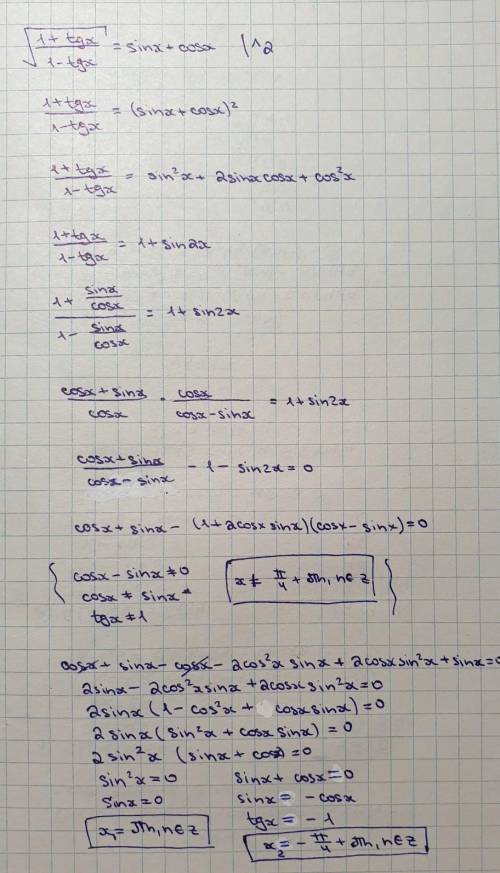 √((1+tgx)/(1-tgx)) = sinx+cosx |^2
(1+tgx)/(1-tgx) = (sinx+cosx)²
(1+tgx)/(1-tgx) = sin²x + 2sinxcosx + cos²x
(1+tgx)/(1-tgx) = 1+sin2x
(1+ sinx/cosx)/(1- sinx/cosx) = 1+sin2x
(cosx+sinx)/cosx · cosx/(cosx-sinx) = 1+sin2x
(cosx+sinx)/(cosx-sinx) - 1 - sin2x = 0
cosx + sinx - (1+2cosxsinx)(cosx-sinx)=0
{ cosx - sinx ≠ 0
cosx ≠ sinx
tgx ≠ 1
x ≠ π/4 + πn, n∈Z }
cosx + sinx - cosx - 2cos²x sinx + 2cosxsin²x + sinx=0
2sinx - 2cos²xsinx + 2cosxsin²x=0
2sinx (1-cos²x + cosxsinx)=0
2sinx (sin²x + cosxsinx) = 0
2sin²x (sinx + cosx)=0
sin²x = 0 sinx + cosx=0
sinx = 0 sinx = -cosx
tgx = -1
x₁= πn, n∈Z x₂= -π/4 + πn, n∈Z